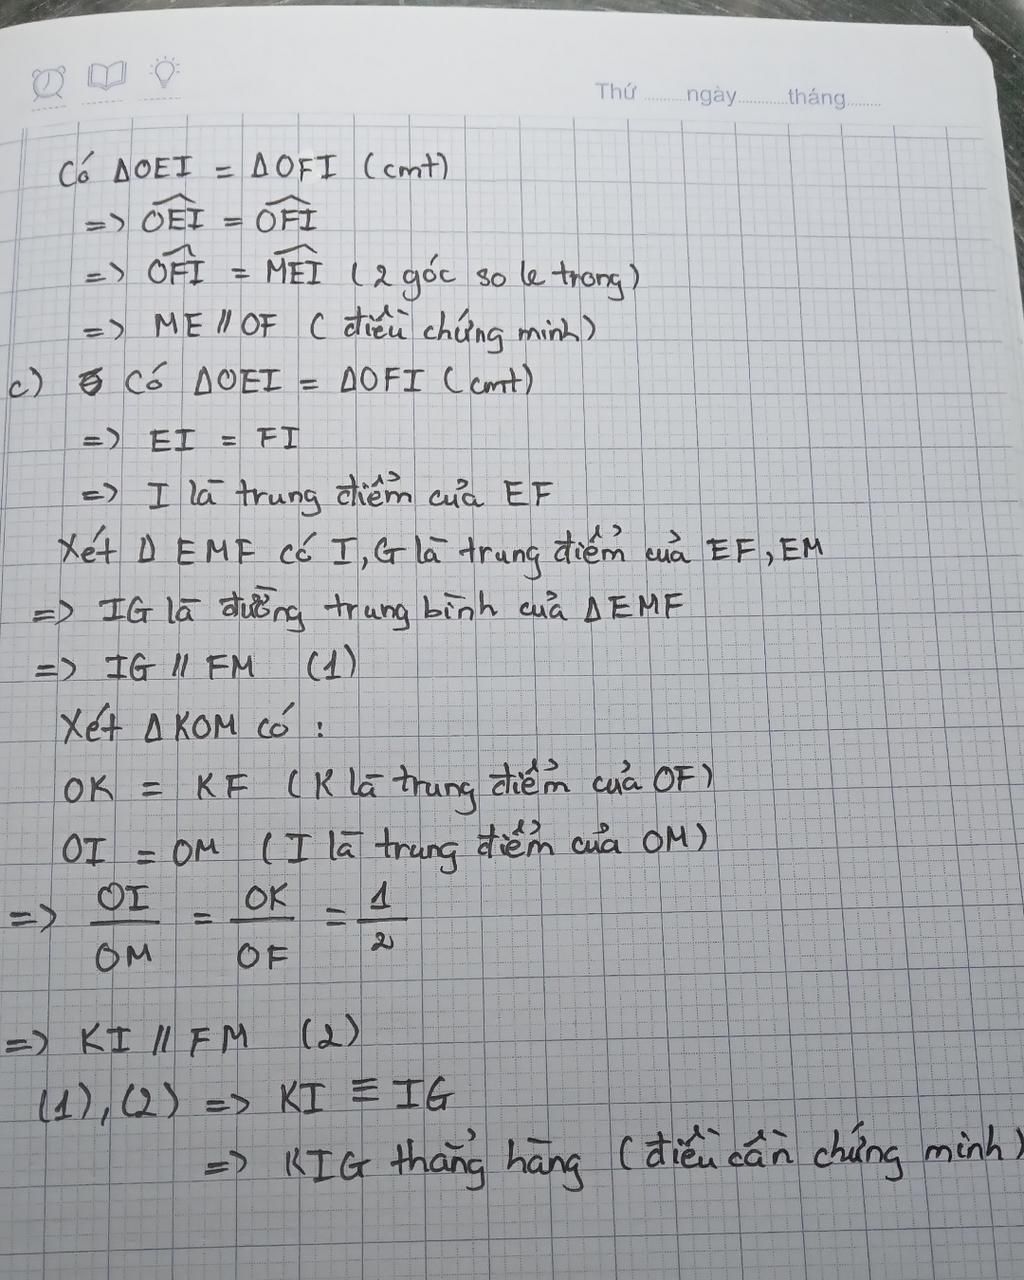 Thứ ........ ngày .......... tháng ........
Có ΔOEI = ΔOFI (cmt)
=> \widehat{OEI} = \widehat{OFI}
=> \widehat{OFI} = \widehat{MEI} (2 góc so le trong)
=> ME // OF (điều chứng minh)
c) Có ΔOEI = ΔOFI (cmt)
=> EI = FI
=> I là trung điểm của EF
Xét Δ EMF có I, G là trung điểm của EF, EM
=> IG là đường trung bình của ΔEMF
=> IG // FM (1)
Xét ΔKOM có :
OK = KF (K là trung điểm của OF)
OI = OM (I là trung điểm của OM)
=> OI/OM = OK/OF = 1/2
=> KI // FM (2)
(1), (2) => KI ≡ IG
=> KIG thẳng hàng (điều cần chứng minh)